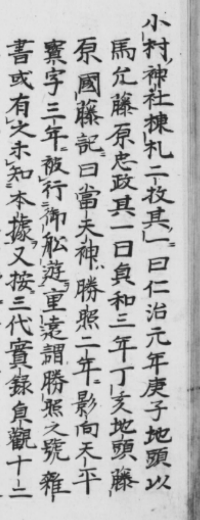 小村神社棟札二枚其一曰仁治元年庚子地頭以
馬允藤原忠政其一曰貞和三年丁亥地頭藤
原國藤記曰當夫神勝照二年影向天平
寳字三年被行御舩遊重遠謂勝照之號雜
書或有之未知本據又按三代實録貞觀十二